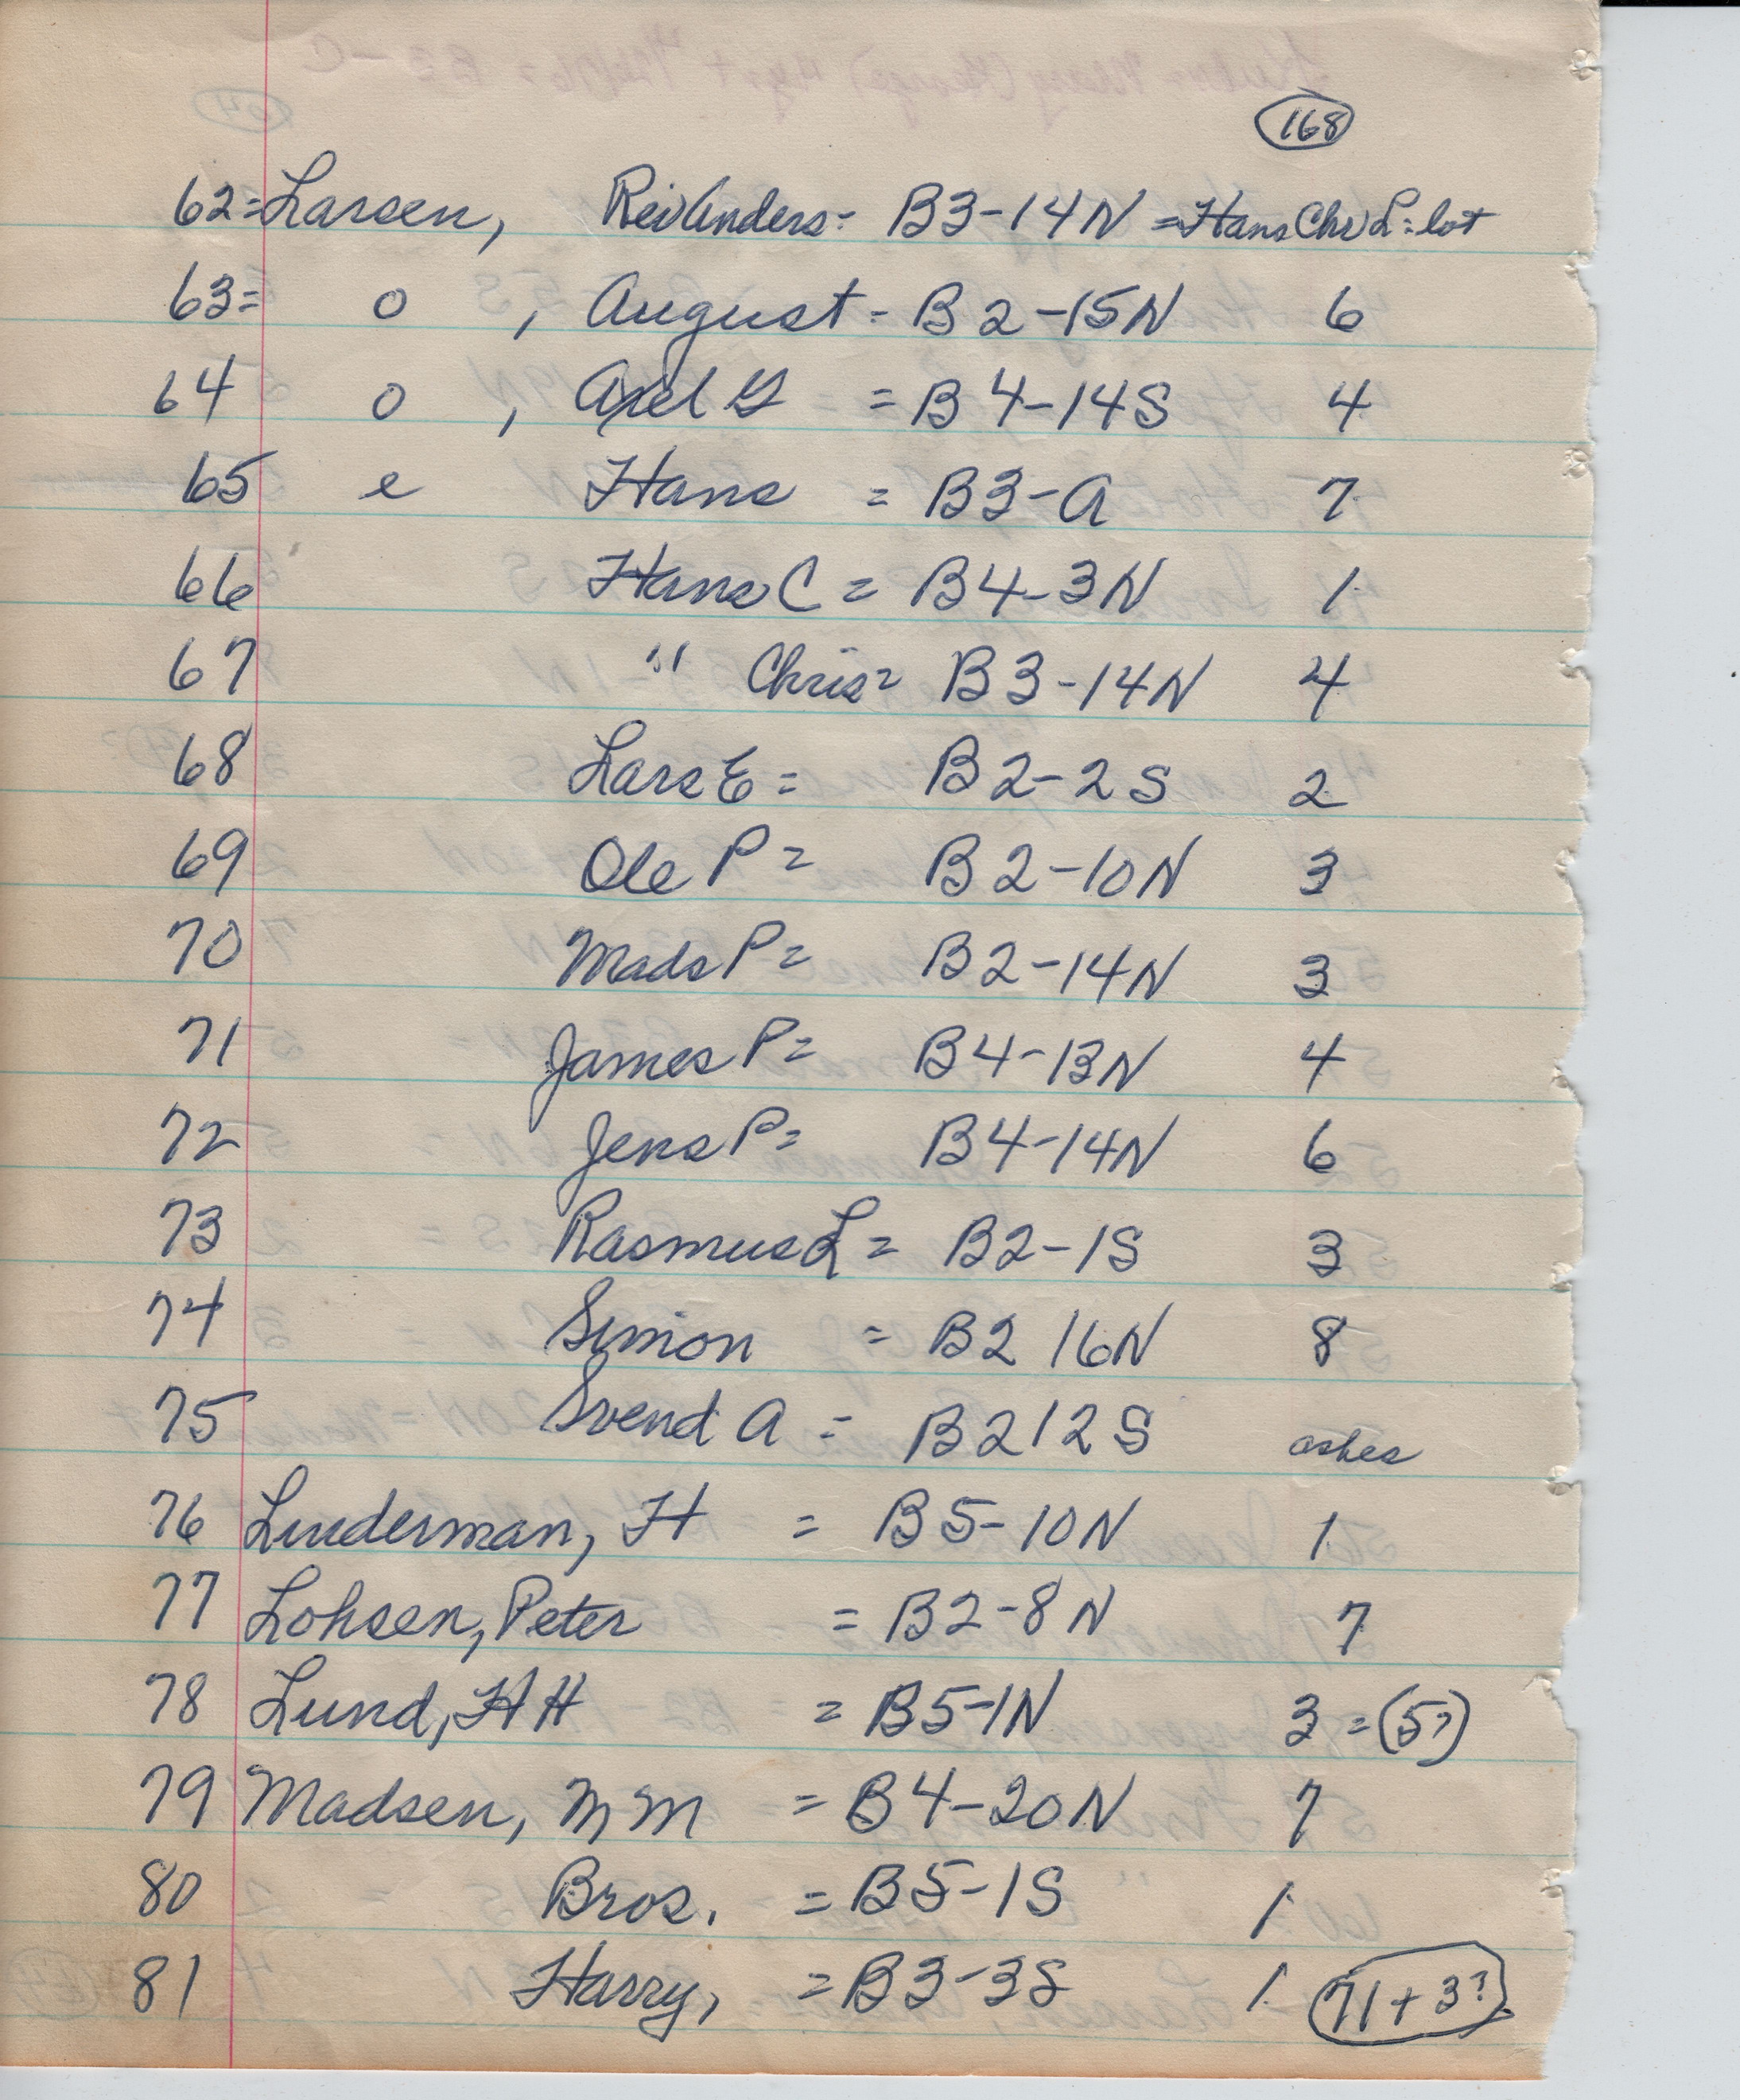 168
62= Larsen, Rev Anders- B3-14N = Hans Chr L= lot
63= o , August - B2-15N 6
64 o , Axel G = B4-14S 4
65 e Hans = B3-A 7
66 Hans C = B4-3N 1
67 " Chris = B3-14N 4
68 Lars E = B2-2S 2
69 Ole P = B2-10N 3
70 Mads P = B2-14N 3
71 James P = B4-13N 4
72 Jens P = B4-14N 6
73 Rasmus L = B2-1S 3
74 Simon = B2 16N 8
75 Svend A = B2 12S ashes
76 Linderman, H = B5-10N 1
77 Lohsen, Peter = B2-8N 7
78 Lund, H H = B5-1N 3 = (5?)
79 Madsen, M M = B4-20N 7
80 Bros. = B5-1S 1
81 Harry, = B3-3S 1 71+3?